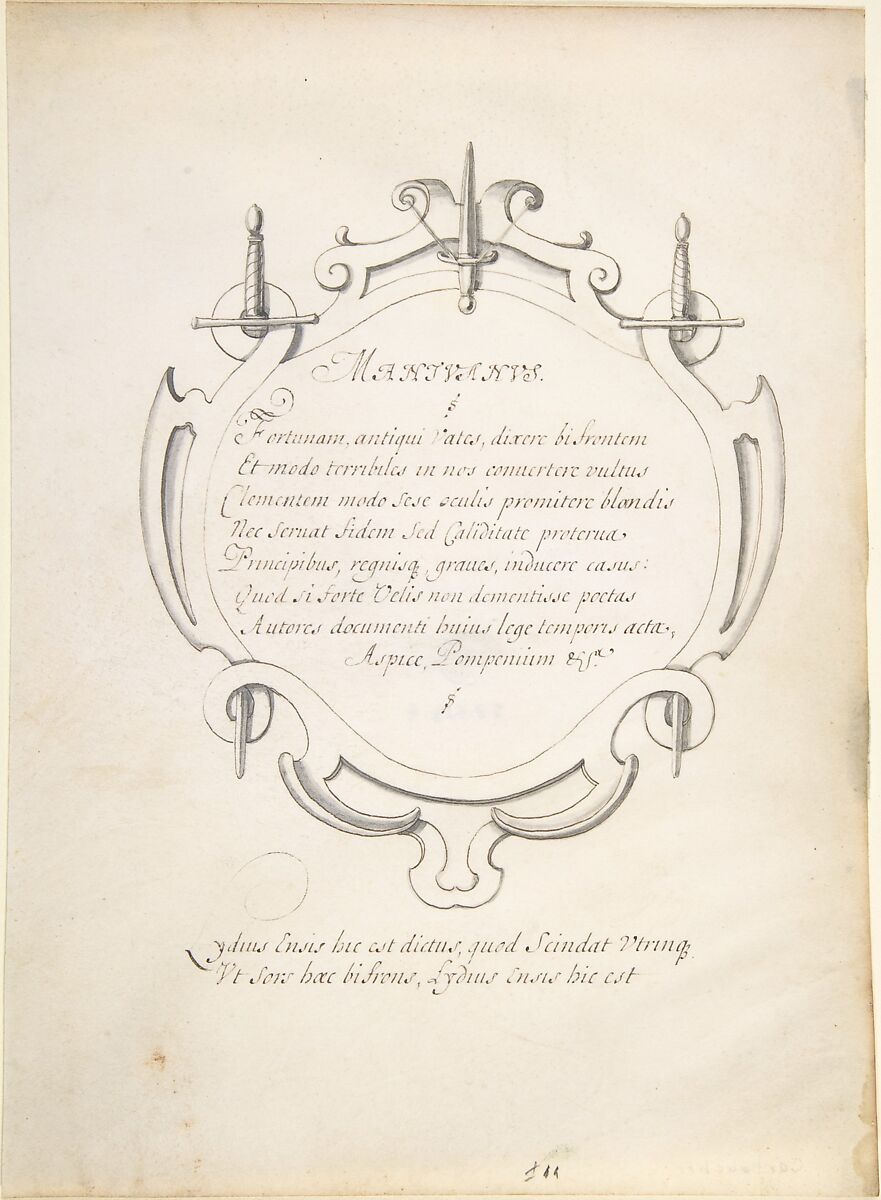 MANTVANVS.
Fortunam, antiqui Vates, dixere bifrontem
Et modo terribiles in nos conuertere vultus
Clementem modo sese oculis promitere blandis
Nec seruat fidem sed Caliditate proterua
Principibus, regnisq, graues, inducere casus:
Quod si forte Velis non dementisse poetas
Autores documenti huius lege temporis acta,
Aspice, Pompenium
Lydius Ensis hic est dictus, quod Scindat Vtrinq.
Vt Sors hæc bifrons, Lydius Ensis hic est